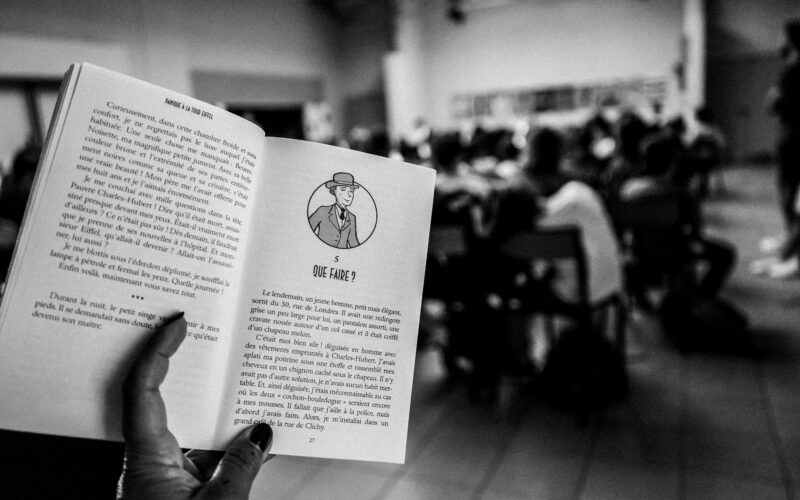 PANIQUE À LA TOUR EIFFEL
Curieusement, dans cette chambre froide et sans
confort, je ne regrettais pas le luxe auquel j'étais
habituée. Une seule chose me manquait : Beurre-
Noisette, ma magnifique petite jument. Avec sa belle
couleur brune et l'extrémité de ses pattes entière-
ment noires comme sa queue et sa crinière, c'était
une vraie beauté ! Mon père me l'avait offerte pour
mes huit ans et je l'aimais énormément.
Je me couchai avec mille questions dans la tête.
Pauvre Charles-Hubert ! Dire qu'il était mort, assas-
siné presque devant mes yeux. Était-il vraiment mort
d'ailleurs ? Ce n'était pas sûr ! Dès demain, il faudrait
que je prenne de ses nouvelles à l'hôpital. Et mon-
sieur Eiffel, qu'allait-il devenir ? Allait-on l'assassi-
ner, lui aussi ?
Je me blottis sous l'édredon déplumé, je soufflai la
lampe à pétrole et fermai les yeux. Quelle journée !
Enfin voilà, maintenant vous savez tout.
***
Durant la nuit, le petit singe à mes
pieds. Il se demandait sans doute qu'était
devenu son maître.
5
QUE FAIRE ?
Le lendemain, un jeune homme, petit mais élégant,
sortit du 50, rue de Londres. Il avait une redingote
grise un peu large pour lui, un pantalon assorti, une
cravate nouée autour d'un col cassé et il était coiffé
d'un chapeau melon.
C'était moi bien sûr ! déguisée en homme avec
des vêtements empruntés à Charles-Hubert. J'avais
aplati ma poitrine sous une étoffe et rassemblé mes
cheveux en un chignon caché sous le chapeau. Il n'y
avait pas d'autre solution, je n'avais aucun habit met-
table. Et, ainsi déguisée, j'étais méconnaissable au cas
où les deux « cochon-bouledogue » seraient encore
à mes trousses. Il fallait que j'aille à la police, mais
d'abord j'avais faim. Alors, je m'installai dans un
grand café de la rue de Clichy.
27